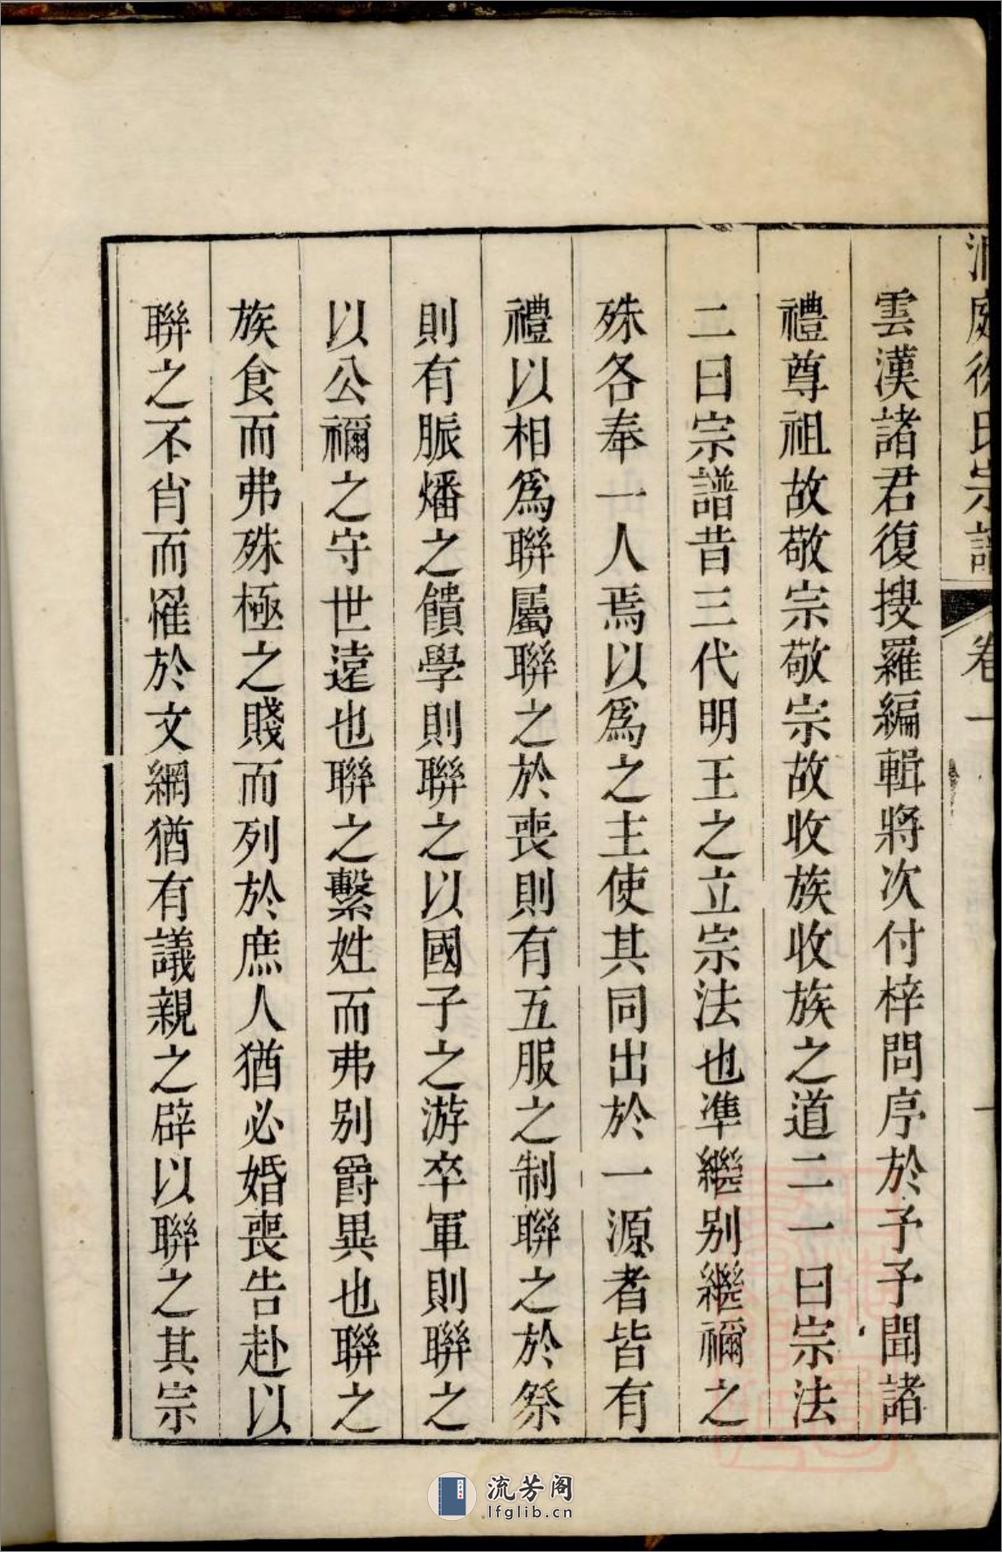 洞庭徐氏宗譜 卷一 一
雲漢諸君復搜羅編輯將次付梓問序於予予聞諸
禮尊祖故敬宗敬宗故收族收族之道二一曰宗法
二曰宗譜昔三代明王之立宗法也凖繼别繼禰之
殊各奉一人焉以爲之主使其同出於一源者皆有
禮以相爲聯屬聯之於喪則有五服之制聯之於祭
則有脤燔之饋學則聯之以國子之游卒軍則聯之
以公禰之守世遠也聯之繫姓而弗别爵異也聯之
族食而弗殊極之賤而列於庶人猶必婚喪告赴以
聯之不肖而罹於文網猶有議親之辟以聯之其宗
流芳阁
lfglib.cn